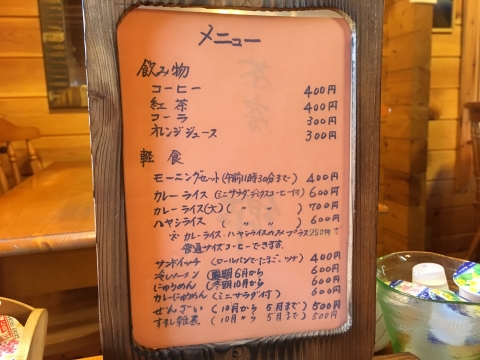 メニュー
飲み物
コーヒー 400円
紅茶 400円
コーラ 300円
オレンジジュース 300円
軽食
モーニングセット(午前11時30分まで) 400円
カレーライス(ミニサラダ・デミタスコーヒー付) 600円
カレーライス(大)( 〃 〃 ) 700円
ハヤシライス ( 〃 〃 ) 600円
※ カレーライス・ハヤシライスのみ プラス250円で
普通サイズコーヒーできます。
サンドイッチ (ロールパンでたまご、ツナ) 400円
冷しラーメン (夏期 6月から 600円
にゅうめん (冬期 10月から 600円
カレーにゅうめん (ミニサラダ付) 600円
ぜんざい (10月から 5月まで) 500円
すまし雑煮 (10月から 5月まで) 500円